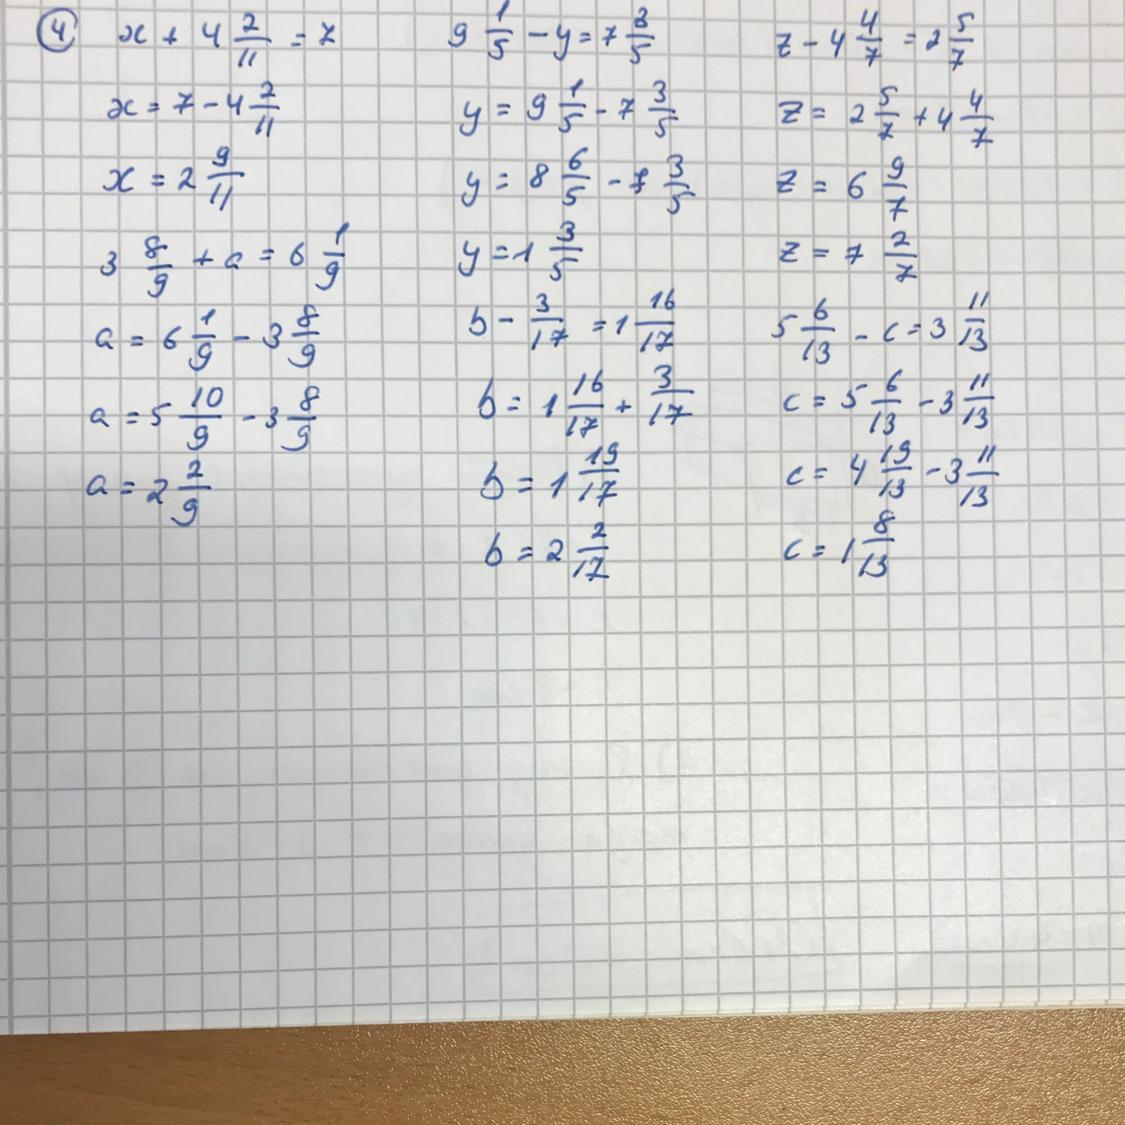 ④ x + 4 2/11 = 7
x = 7 - 4 2/11
x = 2 9/11
3 8/9 + a = 6 1/9
a = 6 1/9 - 3 8/9
a = 5 10/9 - 3 8/9
a = 2 2/9
9 1/5 - y = 7 3/5
y = 9 1/5 - 7 3/5
y = 8 6/5 - 7 3/5
y = 1 3/5
b - 3/17 = 1 16/17
b = 1 16/17 + 3/17
b = 1 19/17
b = 2 2/17
z - 4 4/7 = 2 5/7
z = 2 5/7 + 4 4/7
z = 6 9/7
z = 7 2/7
5 6/13 - c = 3 11/13
c = 5 6/13 - 3 11/13
c = 4 19/13 - 3 11/13
c = 1 8/13